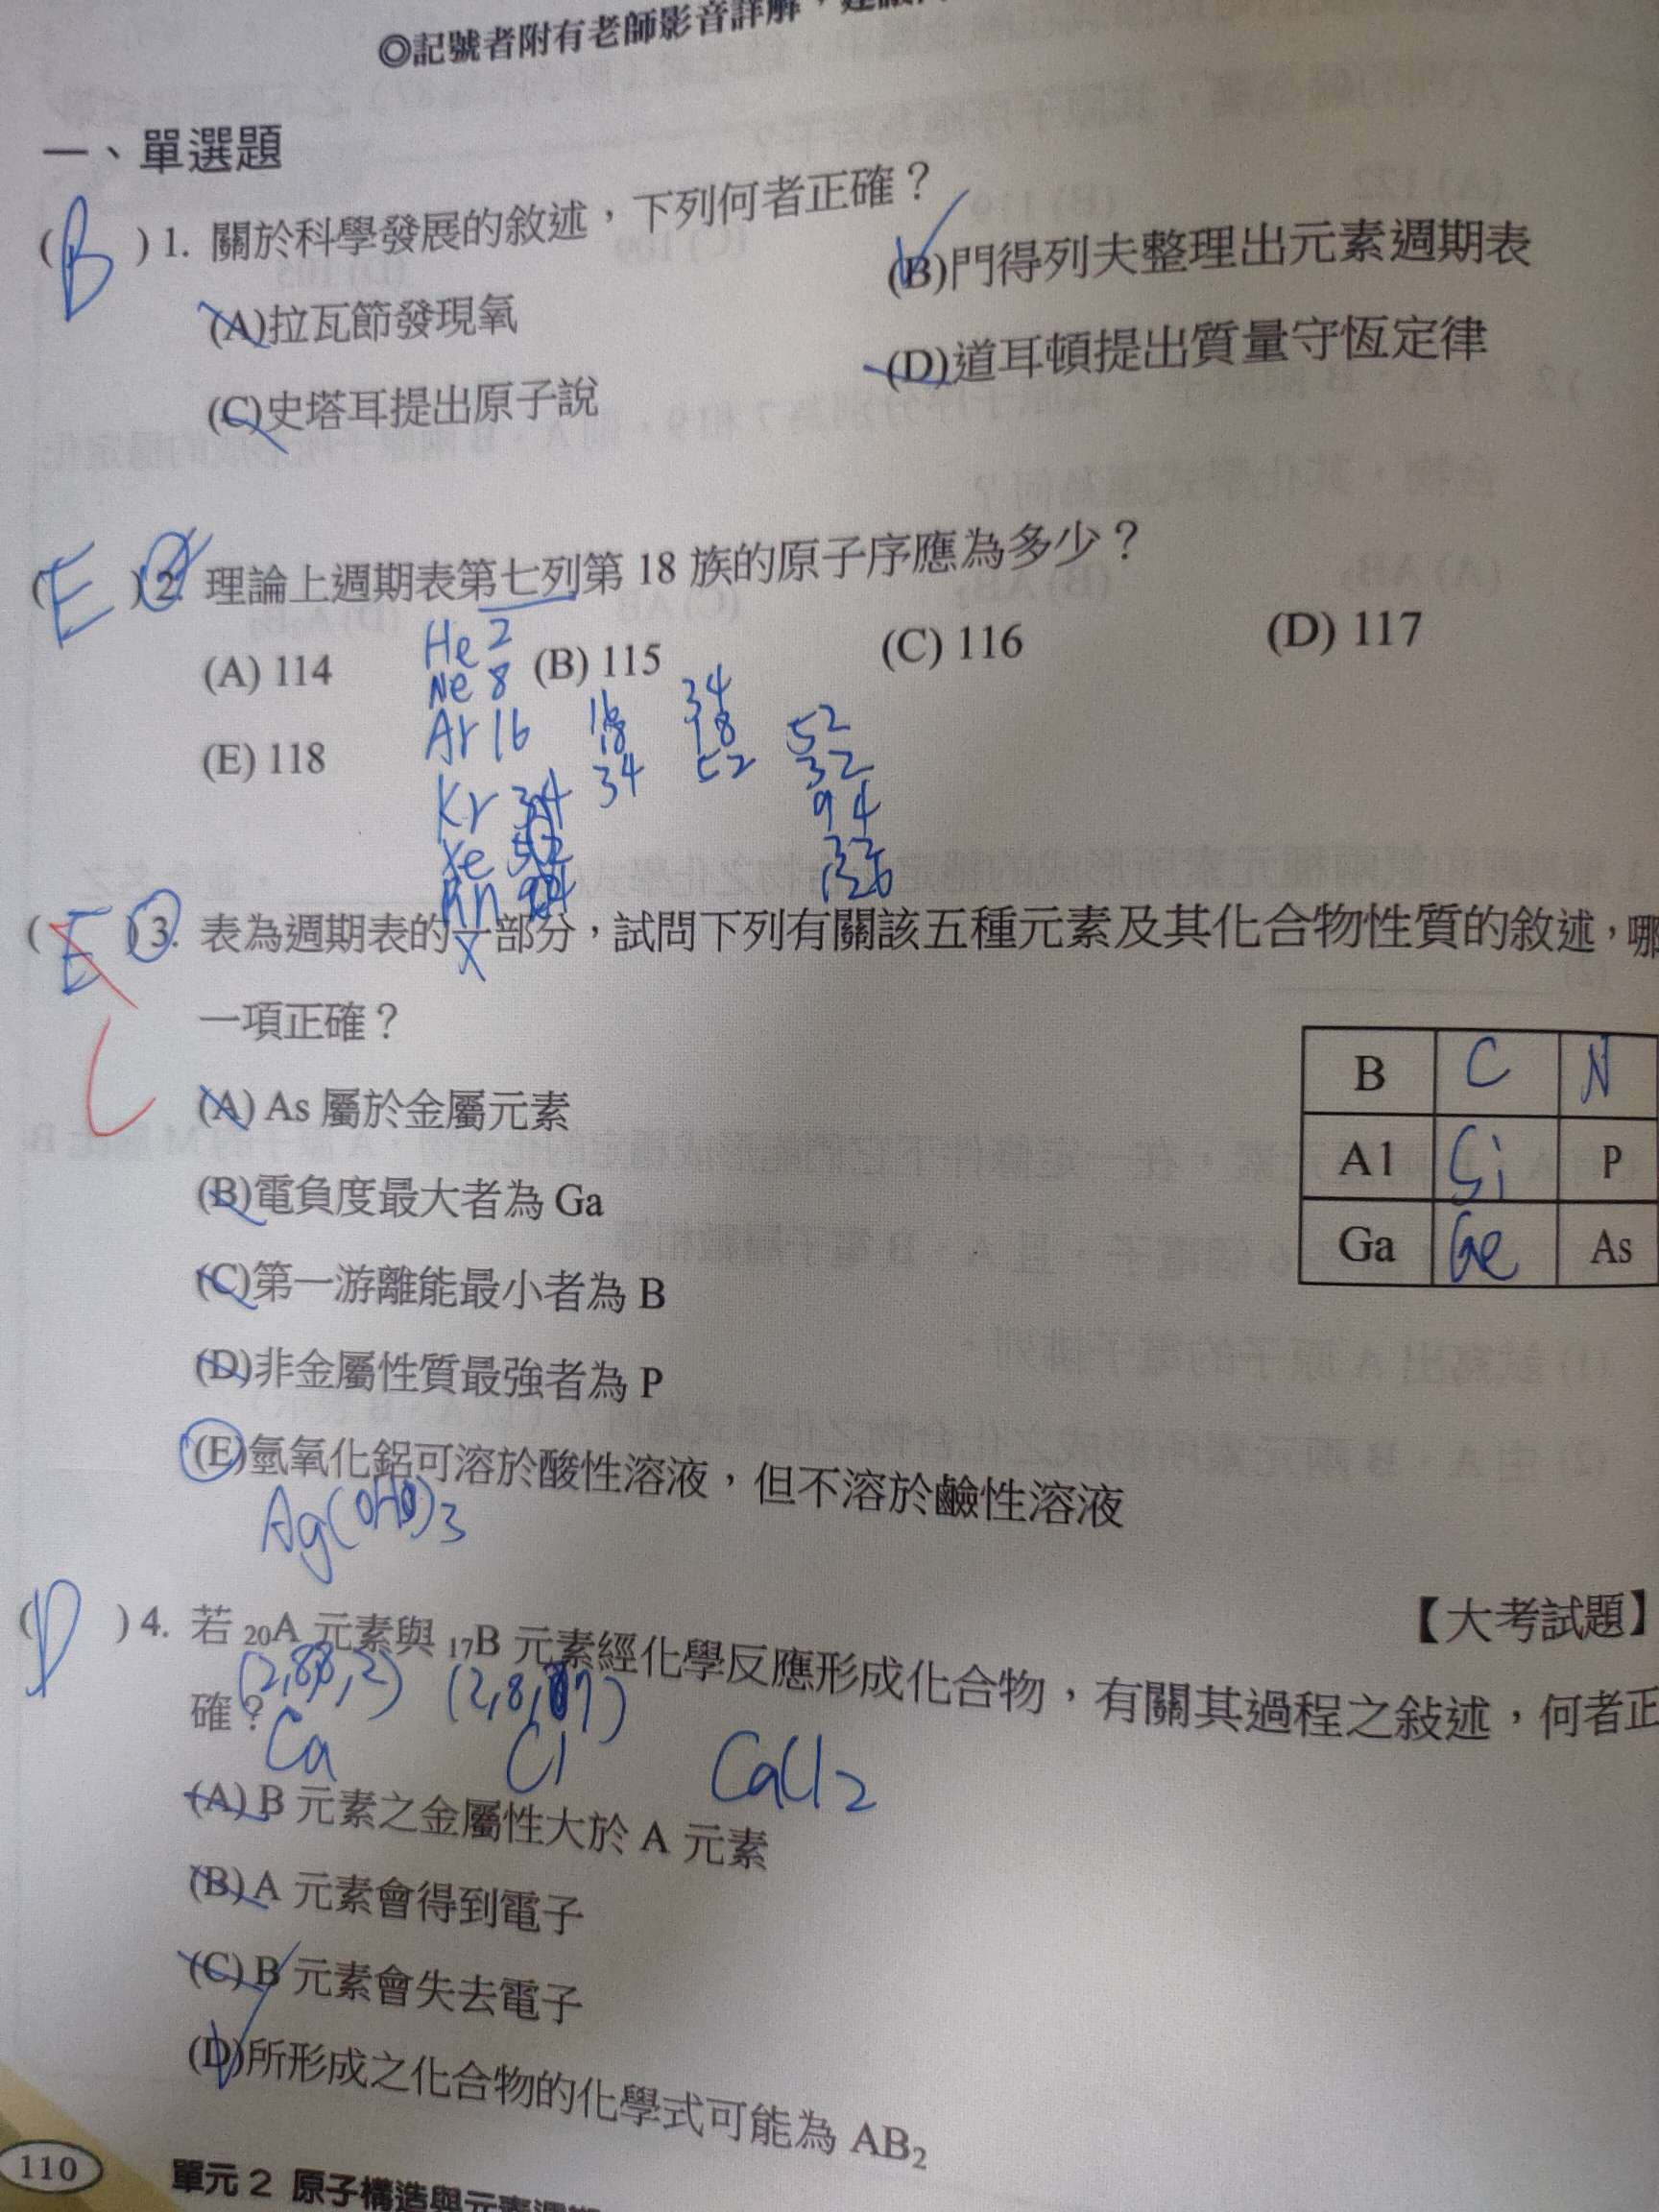 ◎記號者附有老師影音詳解，
一、單選題
( B ) 1. 關於科學發展的敘述，下列何者正確？
(A)拉瓦節發現氧
(B)門得列夫整理出元素週期表
(C)史塔耳提出原子說
(D)道耳頓提出質量守恆定律
( E ) 2. 理論上週期表第七列第 18 族的原子序應為多少？
(A) 114
(B) 115
(C) 116
(D) 117
(E) 118
He 2
Ne 8
Ar 16
Kr 34
Xe 52
Rn 94
X
16
18
34
34
18
52
52
32
94
32
126
( E ) 3. 表為週期表的一部分，試問下列有關該五種元素及其化合物性質的敘述，哪
一項正確？
(A) As 屬於金屬元素
(B)電負度最大者為 Ga
(C)第一游離能最小者為 B
(D)非金屬性質最強者為 P
(E)氫氧化鋁可溶於酸性溶液，但不溶於鹼性溶液
Ag(OH)3
B C N
Al Si P
Ga Ge As
【大考試題】
( D ) 4. 若 20A 元素與 17B 元素經化學反應形成化合物，有關其過程之敍述，何者正
確？
(2,8,8,2) (2,8,7)
Ca Cl CaCl2
(A) B 元素之金屬性大於 A 元素
(B) A 元素會得到電子
(C) B 元素會失去電子
(D)所形成之化合物的化學式可能為 AB2
110
單元 2 原子構造與元素週期